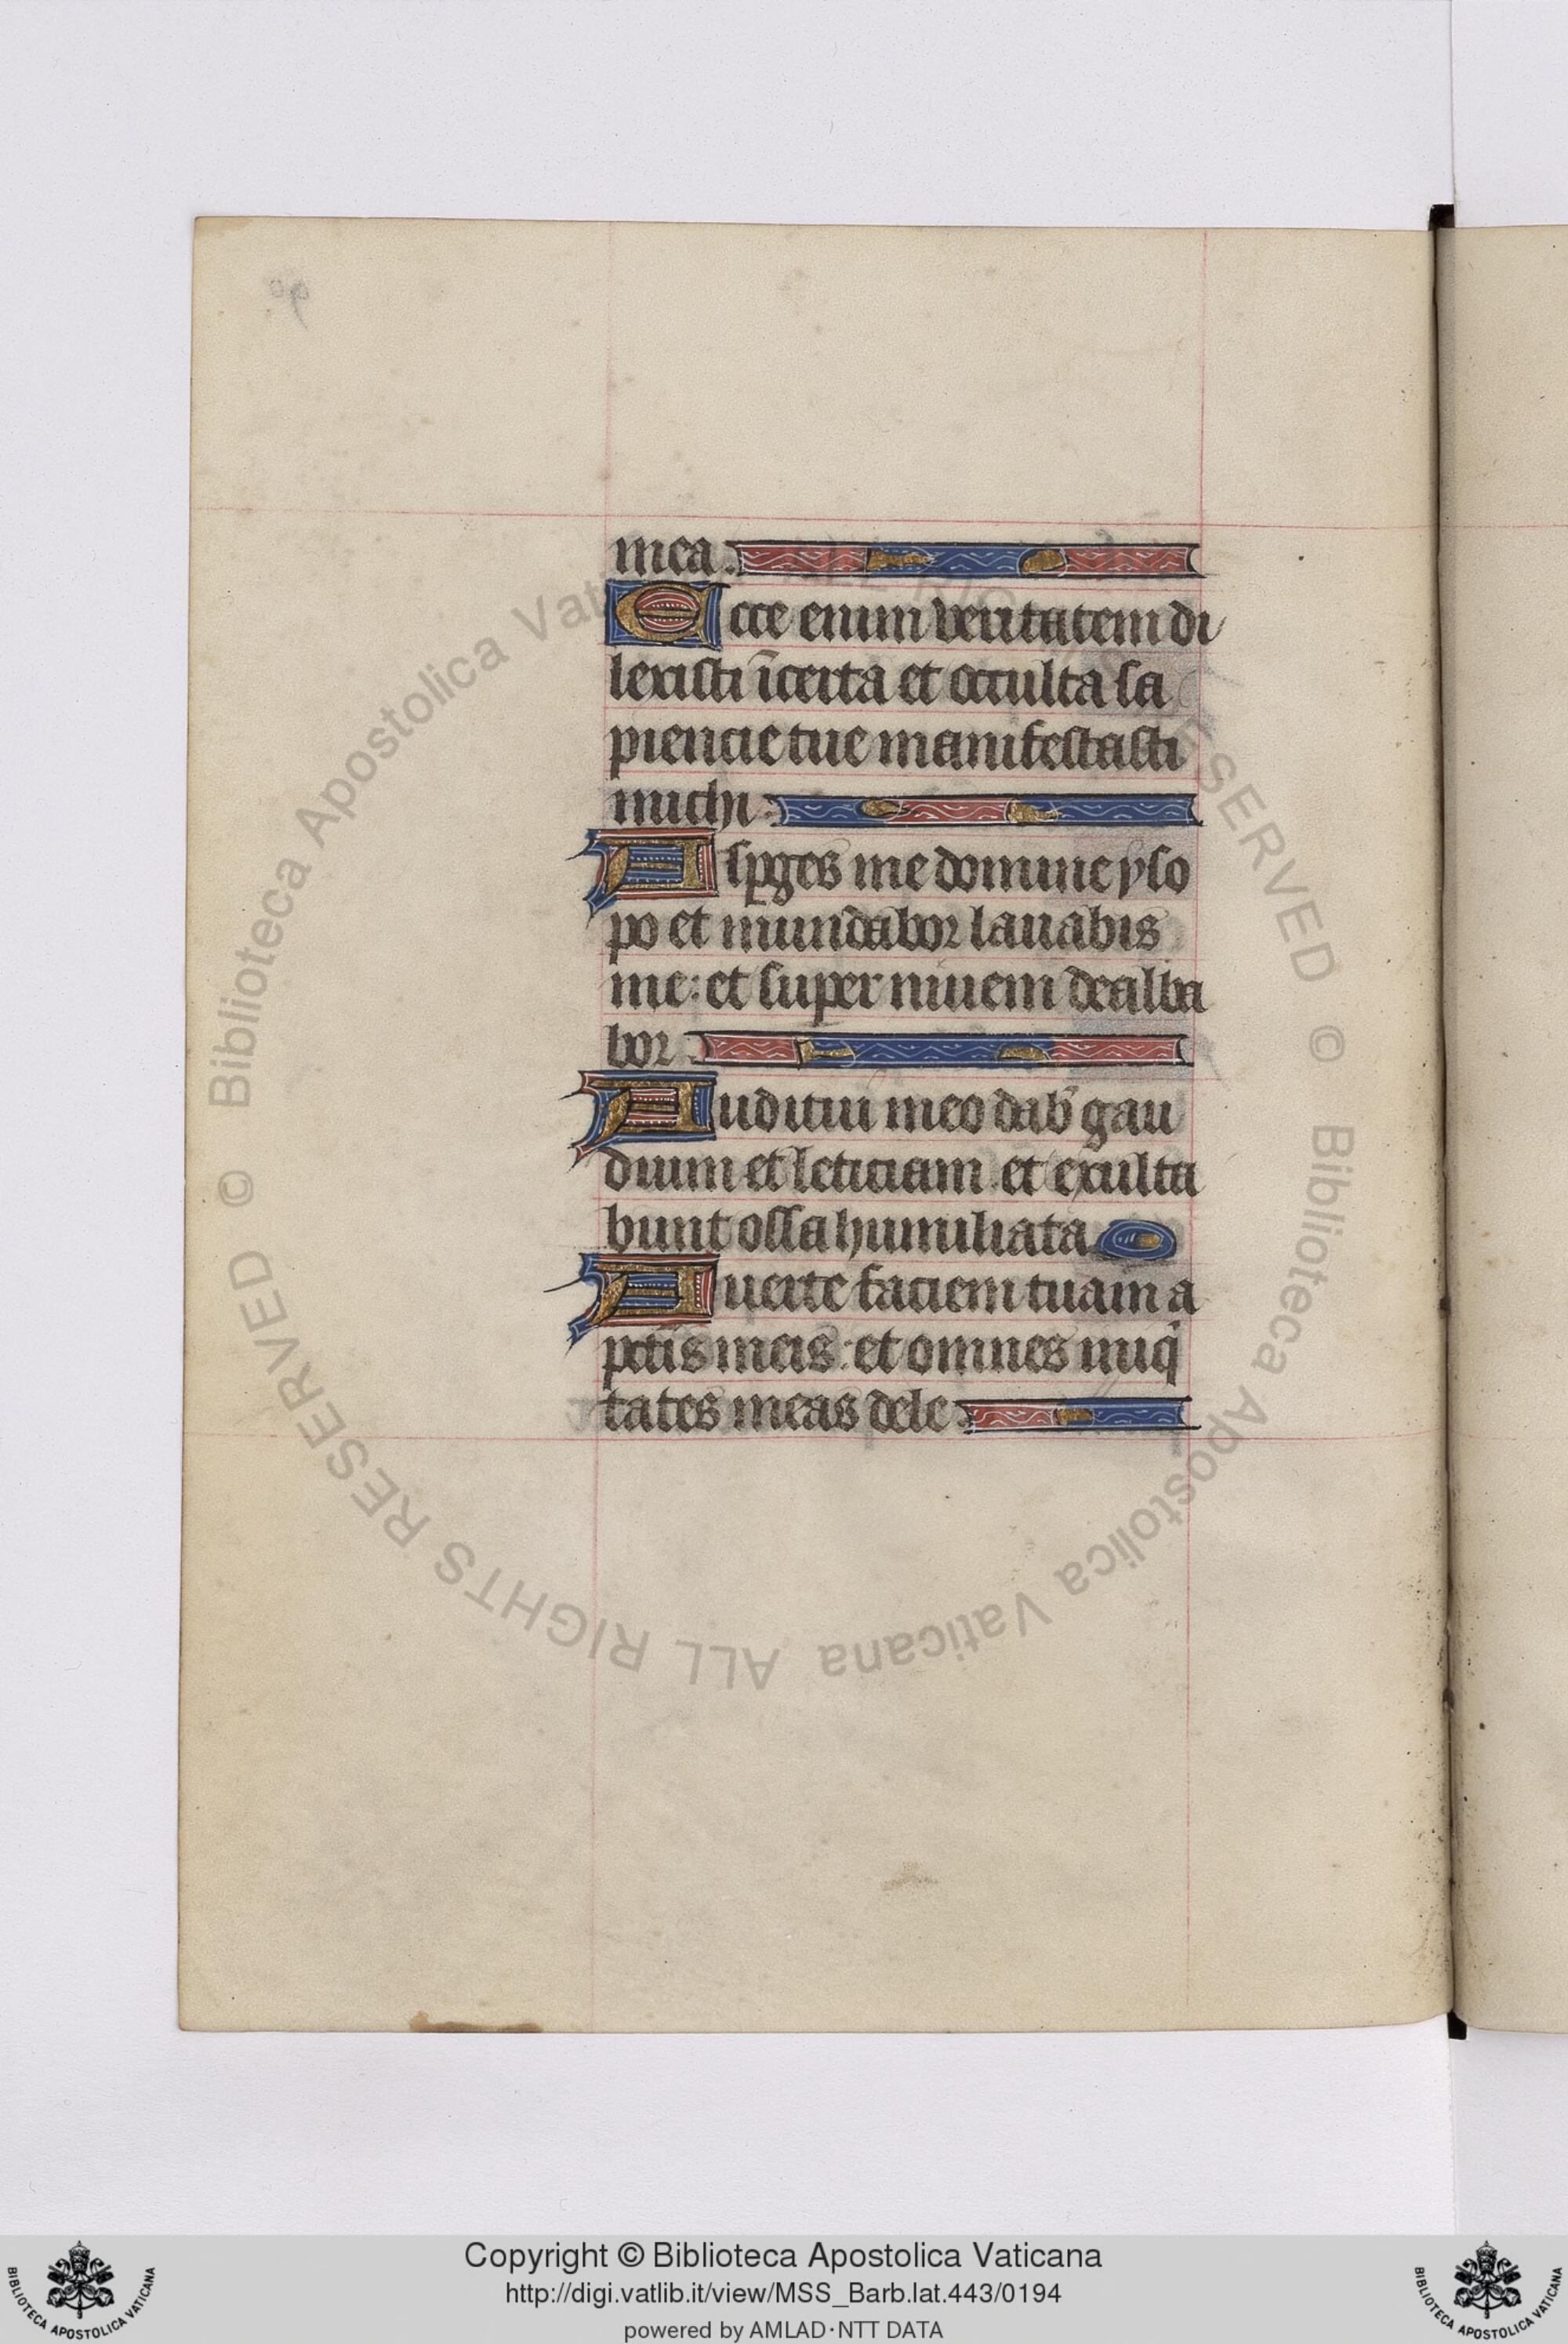 mea.
Ecce enim veritatem di
lexisti īcerta et occulta sa
piencie tue manifestasti
michi.
Asꝑges me domine yso
po et mundabor lauabis
me: et super niuem dealba
bor.
Auditui meo dab' gau
dium et leticiam et exulta
bunt ossa humiliata.
Auerte faciem tuam a
pctīs meis: et omnes iniqⁱ
tates meas dele.
© Biblioteca Apostolica Vaticana ALL RIGHTS RESERVED © Biblioteca Apostolica Vaticana ALL RIGHTS RESERVED
Copyright © Biblioteca Apostolica Vaticana
http://digi.vatlib.it/view/MSS_Barb.lat.443/0194
powered by AMLAD·NTT DATA
BIBLIOTECA APOSTOLICA VATICANA
BIBLIOTECA APOSTOLICA VATICANA